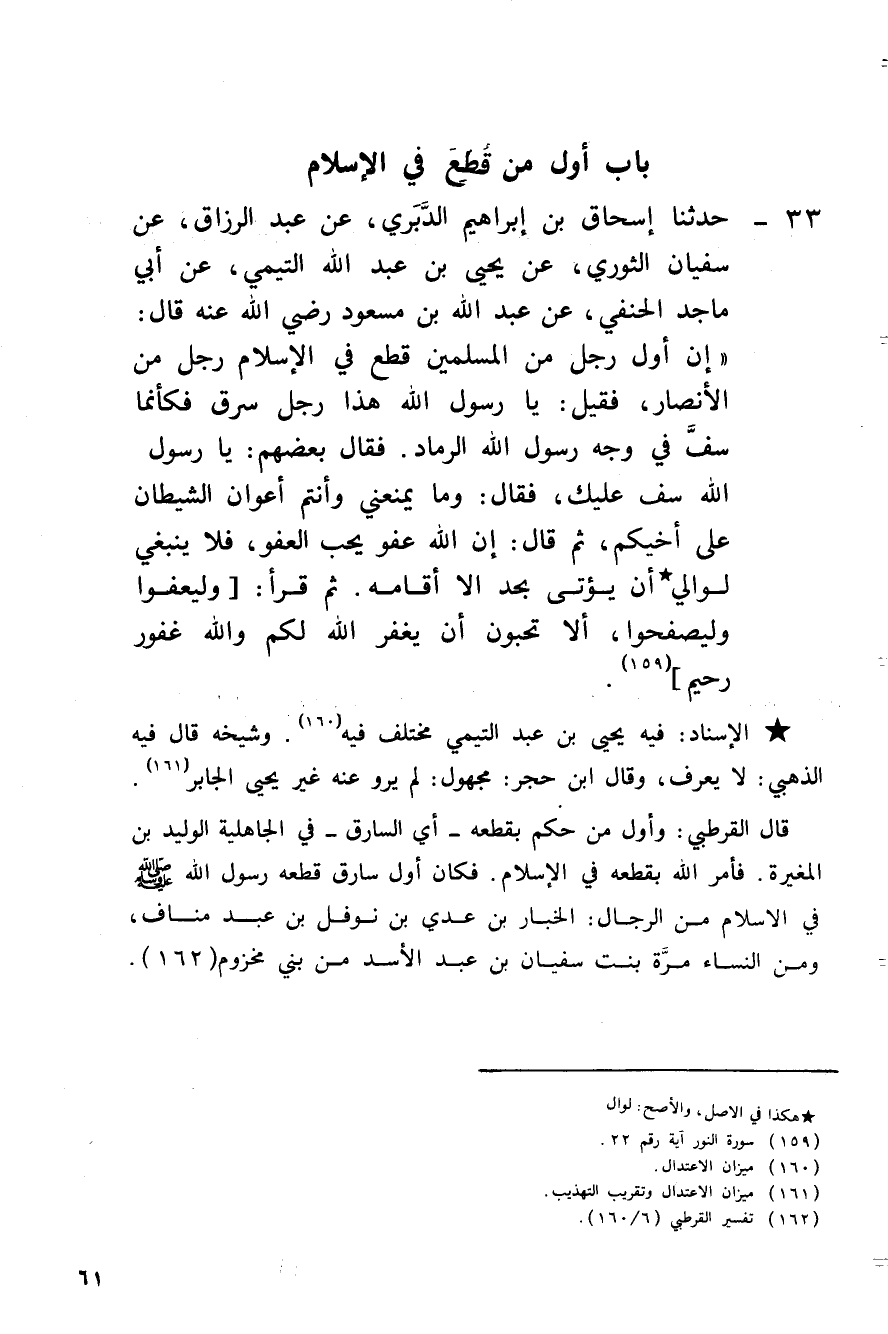 باب أول من قُطَعَ في الإسلام
٣٣ - حدثنا إسحاق بن إبراهيم الدَّبَري، عن عبد الرزاق، عن
سفيان الثوري، عن يحيى بن عبد الله التيمي، عن أبي
ماجد الحنفي، عن عبد الله بن مسعود رضي الله عنه قال:
« إن أول رجل من المسلمين قطع في الإسلام رجل من
الأنصار، فقيل: يا رسول الله هذا رجل سرق فكأنما
سفَّ في وجه رسول الله الرماد. فقال بعضهم: يا رسول
الله سف عليك، فقال: وما يمنعني وأنتم أعوان الشيطان
على أخيكم، ثم قال: إن الله عفو يحب العفو، فلا ينبغي
لـوالي★ أن يـؤتـى بحد الا أقـامـه. ثم قـرأ: [ وليعفـوا
وليصفحوا، ألا تحبون أن يغفر الله لكم والله غفور
رحيم ](١٥٩).
★ الإسناد: فيه يحيى بن عبد التيمي مختلف فيه(١٦٠). وشيخه قال فيه
الذهبي: لا يعرف، وقال ابن حجر: مجهول: لم يرو عنه غير يحيى الجابر(١٦١).
قال القرطبي: وأول من حكم بقطعه - أي السارق - في الجاهلية الوليد بن
المغيرة. فأمر الله بقطعه في الإسلام. فكان أول سارق قطعه رسول الله ﷺ
في الاسلام مـن الرجال: الخبار بن عـدي بن نـوفـل بن عبـد منـاف،
ومـن النسـاء مـرَّة بنـت سفيـان بن عبـد الأسـد مـن بني مخزوم(١٦٢).
★هكذا في الاصل، والأصح: لوال
(١٥٩) سورة النور آية رقم ٢٢.
(١٦٠) ميزان الاعتدال.
(١٦١) ميزان الاعتدال وتقريب التهذيب.
(١٦٢) تفسير القرطبي (٦/ ١٦٠).
٦١